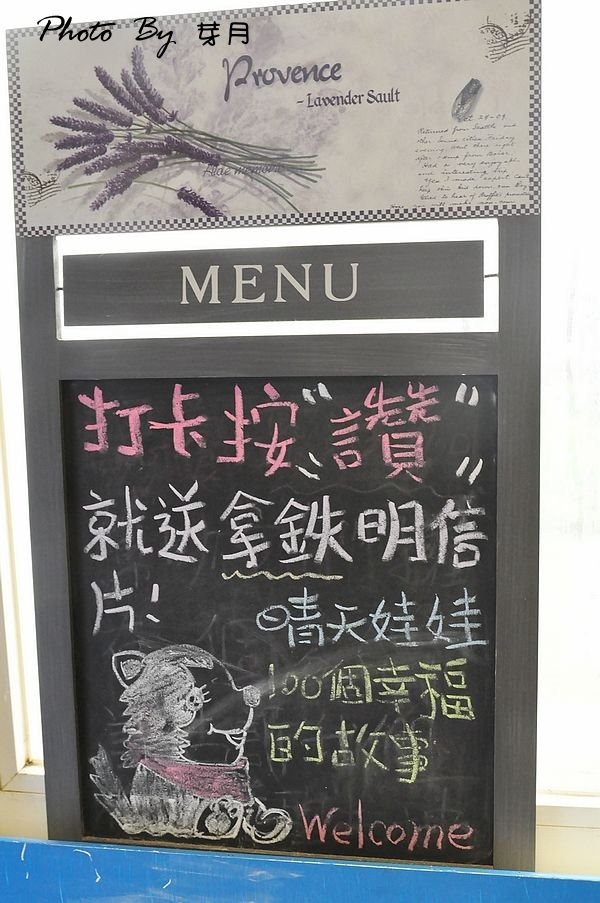 Photo By 芽月
Provence
- Lavender Sault
Oct 29-09
MENU
打卡按"讚"
就送拿鉄明信
片!
晴天娃娃
100個幸福
的故事
Welcome